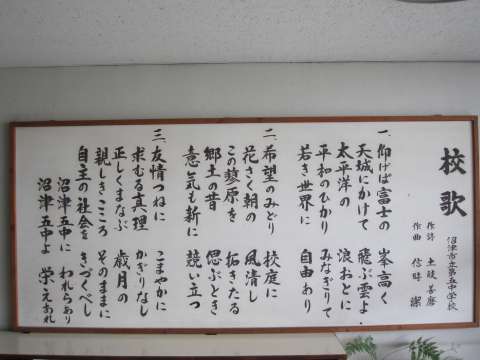 校歌
沼津市立第五中学校
作詩 土岐善麿
作曲 信時潔
一、仰げば富士の 峯高く
天城にかけて 飛ぶ雲よ
太平洋の 浪おとに
平和のひかり みなぎりて
若き世界に 自由あり
二、希望のみどり 校庭に
花さく朝の 風清し
この 原を 拓きたる
郷土の昔 偲ぶとき
意気も新に 競い立つ
三、友情つねに こまやかに
求むる真理 かぎりなし
正しくまなぶ 歳月の
親しきこころ そのままに
自主の社会を きづくべし
沼津五中に われらあり
沼津五中よ 栄えあれ